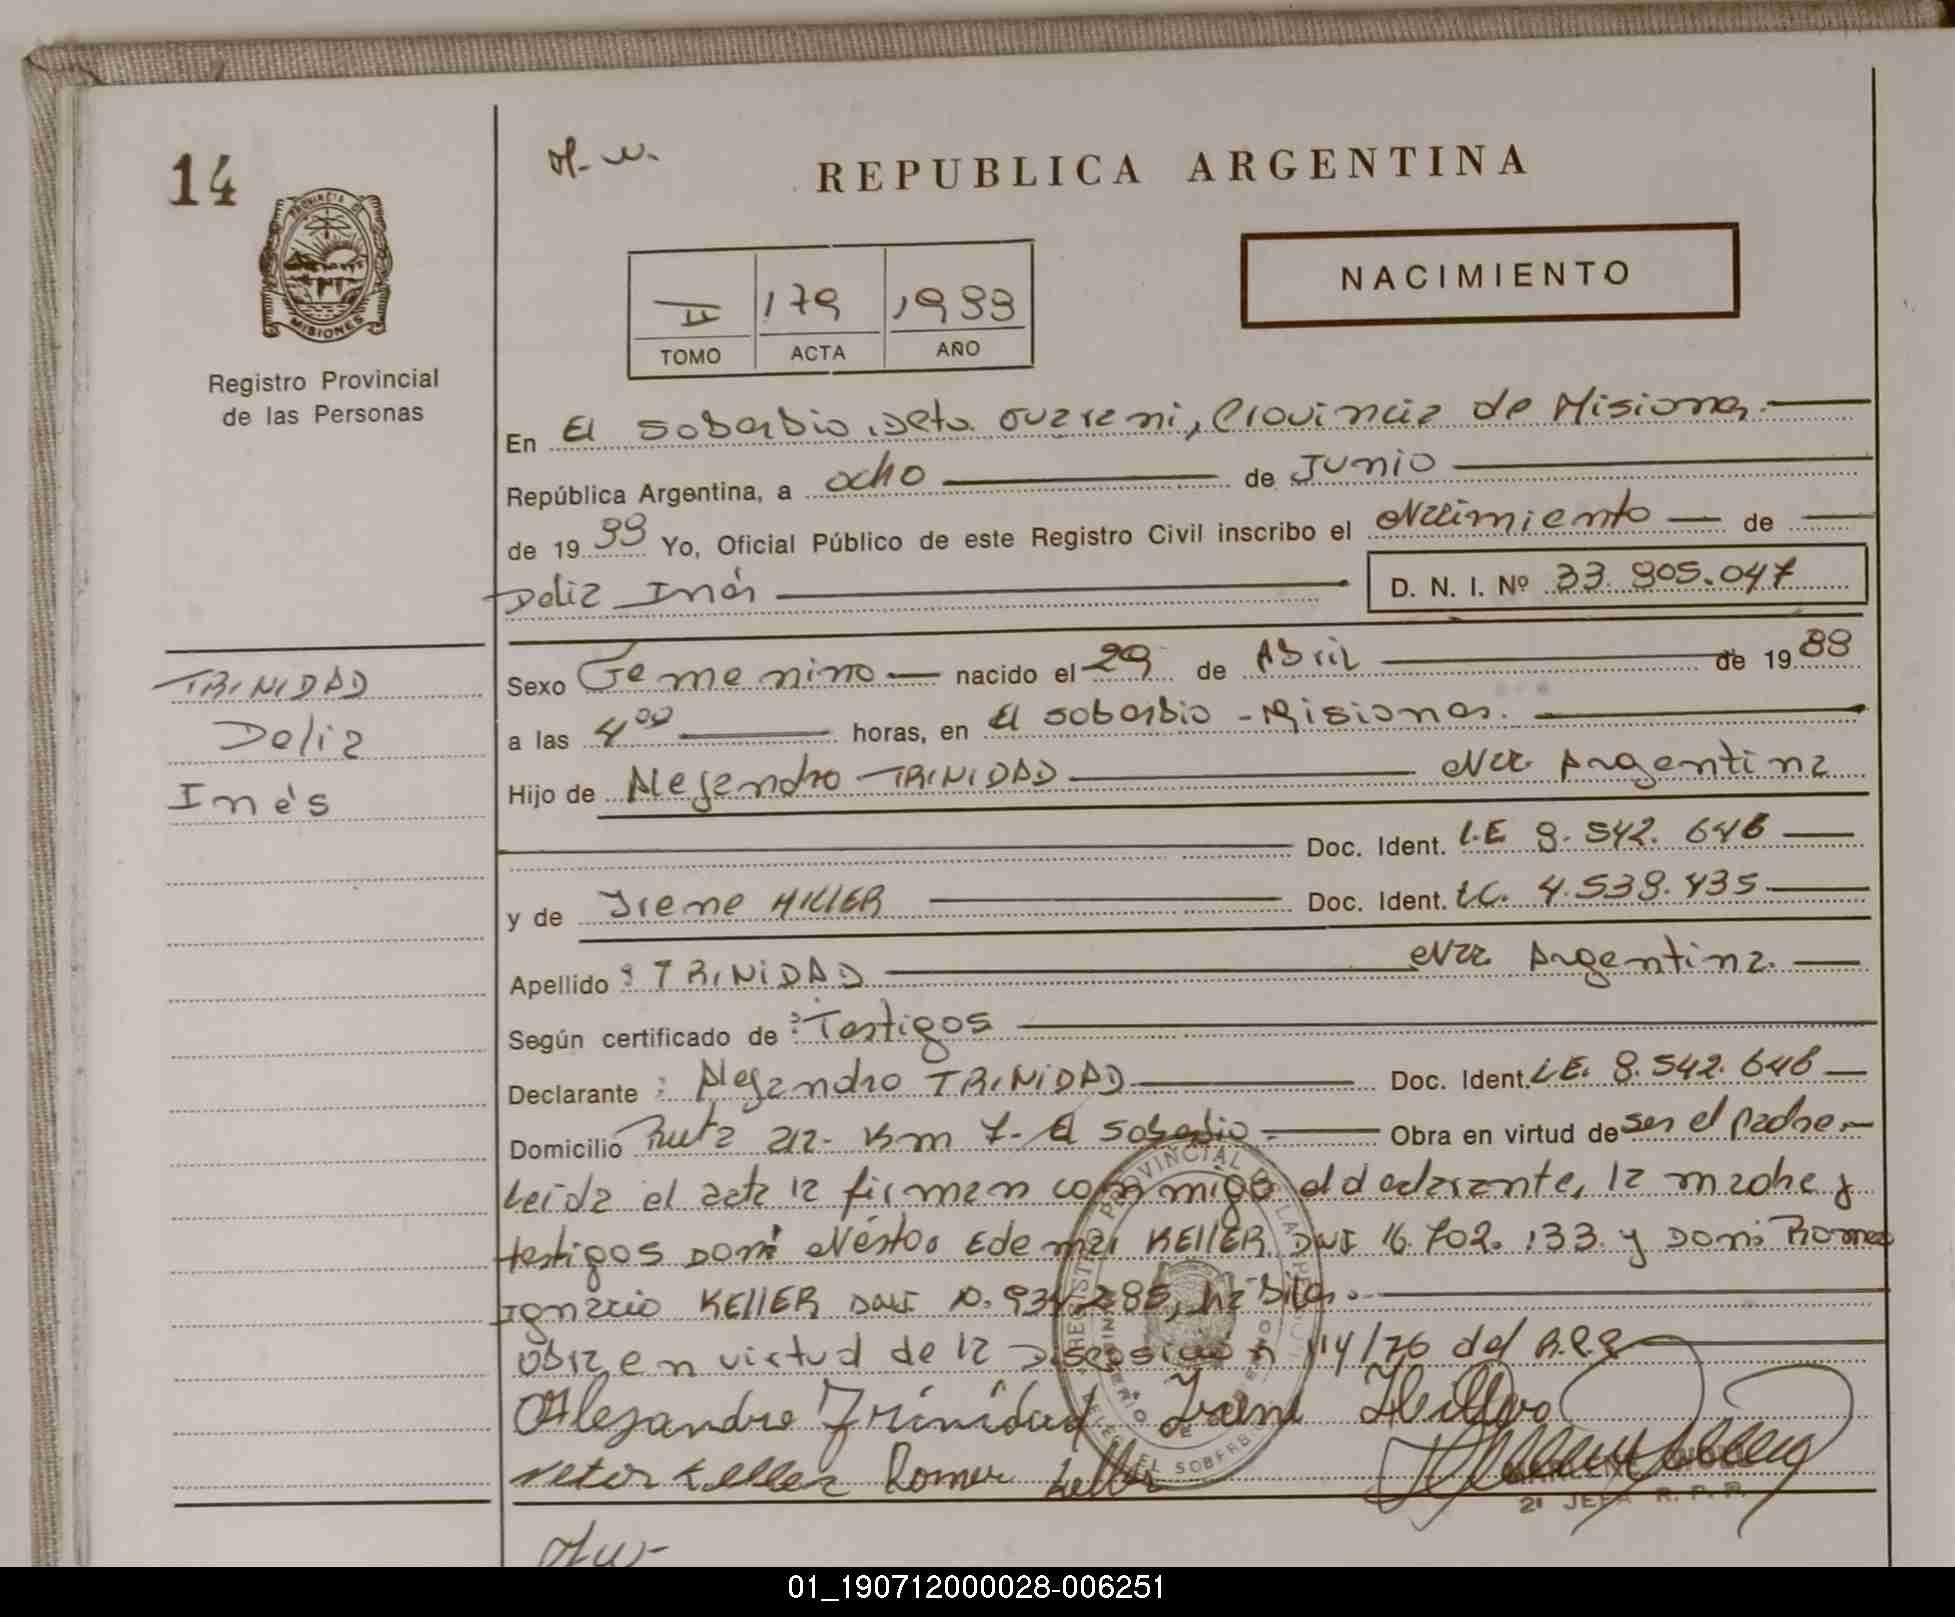 14
H-N.
REPUBLICA ARGENTINA
PROVINCIA DE
MISIONES
Registro Provincial
de las Personas
NACIMIENTO
II 179 1988
TOMO ACTA AÑO
En El Soberbio, Dpto. Guarani, Provincia de Misiones.
República Argentina, a ocho de Junio
de 1988 Yo, Oficial Público de este Registro Civil inscribo el Nacimiento de
Delia Inés D. N. I. Nº 33.905.047
TRINIDAD
Delia
Inés
Sexo Femenino nacido el 29 de Abril de 1988
a las 4 00 horas, en El Soberbio - Misiones.
Hijo de Alejandro TRINIDAD Nac. Argentina
Doc. Ident. L.E 8.542.646
y de Irene HILLER Doc. Ident. L.C. 4.539.435
Apellido : TRINIDAD Nac. Argentina.
Según certificado de : Testigos
Declarante : Alejandro TRINIDAD Doc. Ident. L.E. 8.542.646
Domicilio Ruta 212- Km 7- El Soberbio - Obra en virtud de ser el padre.-
Leida el acta la firman conmigo el declarante, la madre y
testigos Don: Néstor Edemar KELLER DNI 16.702.133 y Don: Romeo
Ignacio KELLER DNI 10.934.285, hábiles.
Obra en virtud de la Disposición 114/76 del R.P.P
Alejandro Trinidad Irene Hiller
Nestor Keller Romeo Keller
REGISTRO PROVINCIAL DE LAS PERSONAS
EL SOBERBIO
JEFA R. P. P.
01_190712000028-006251